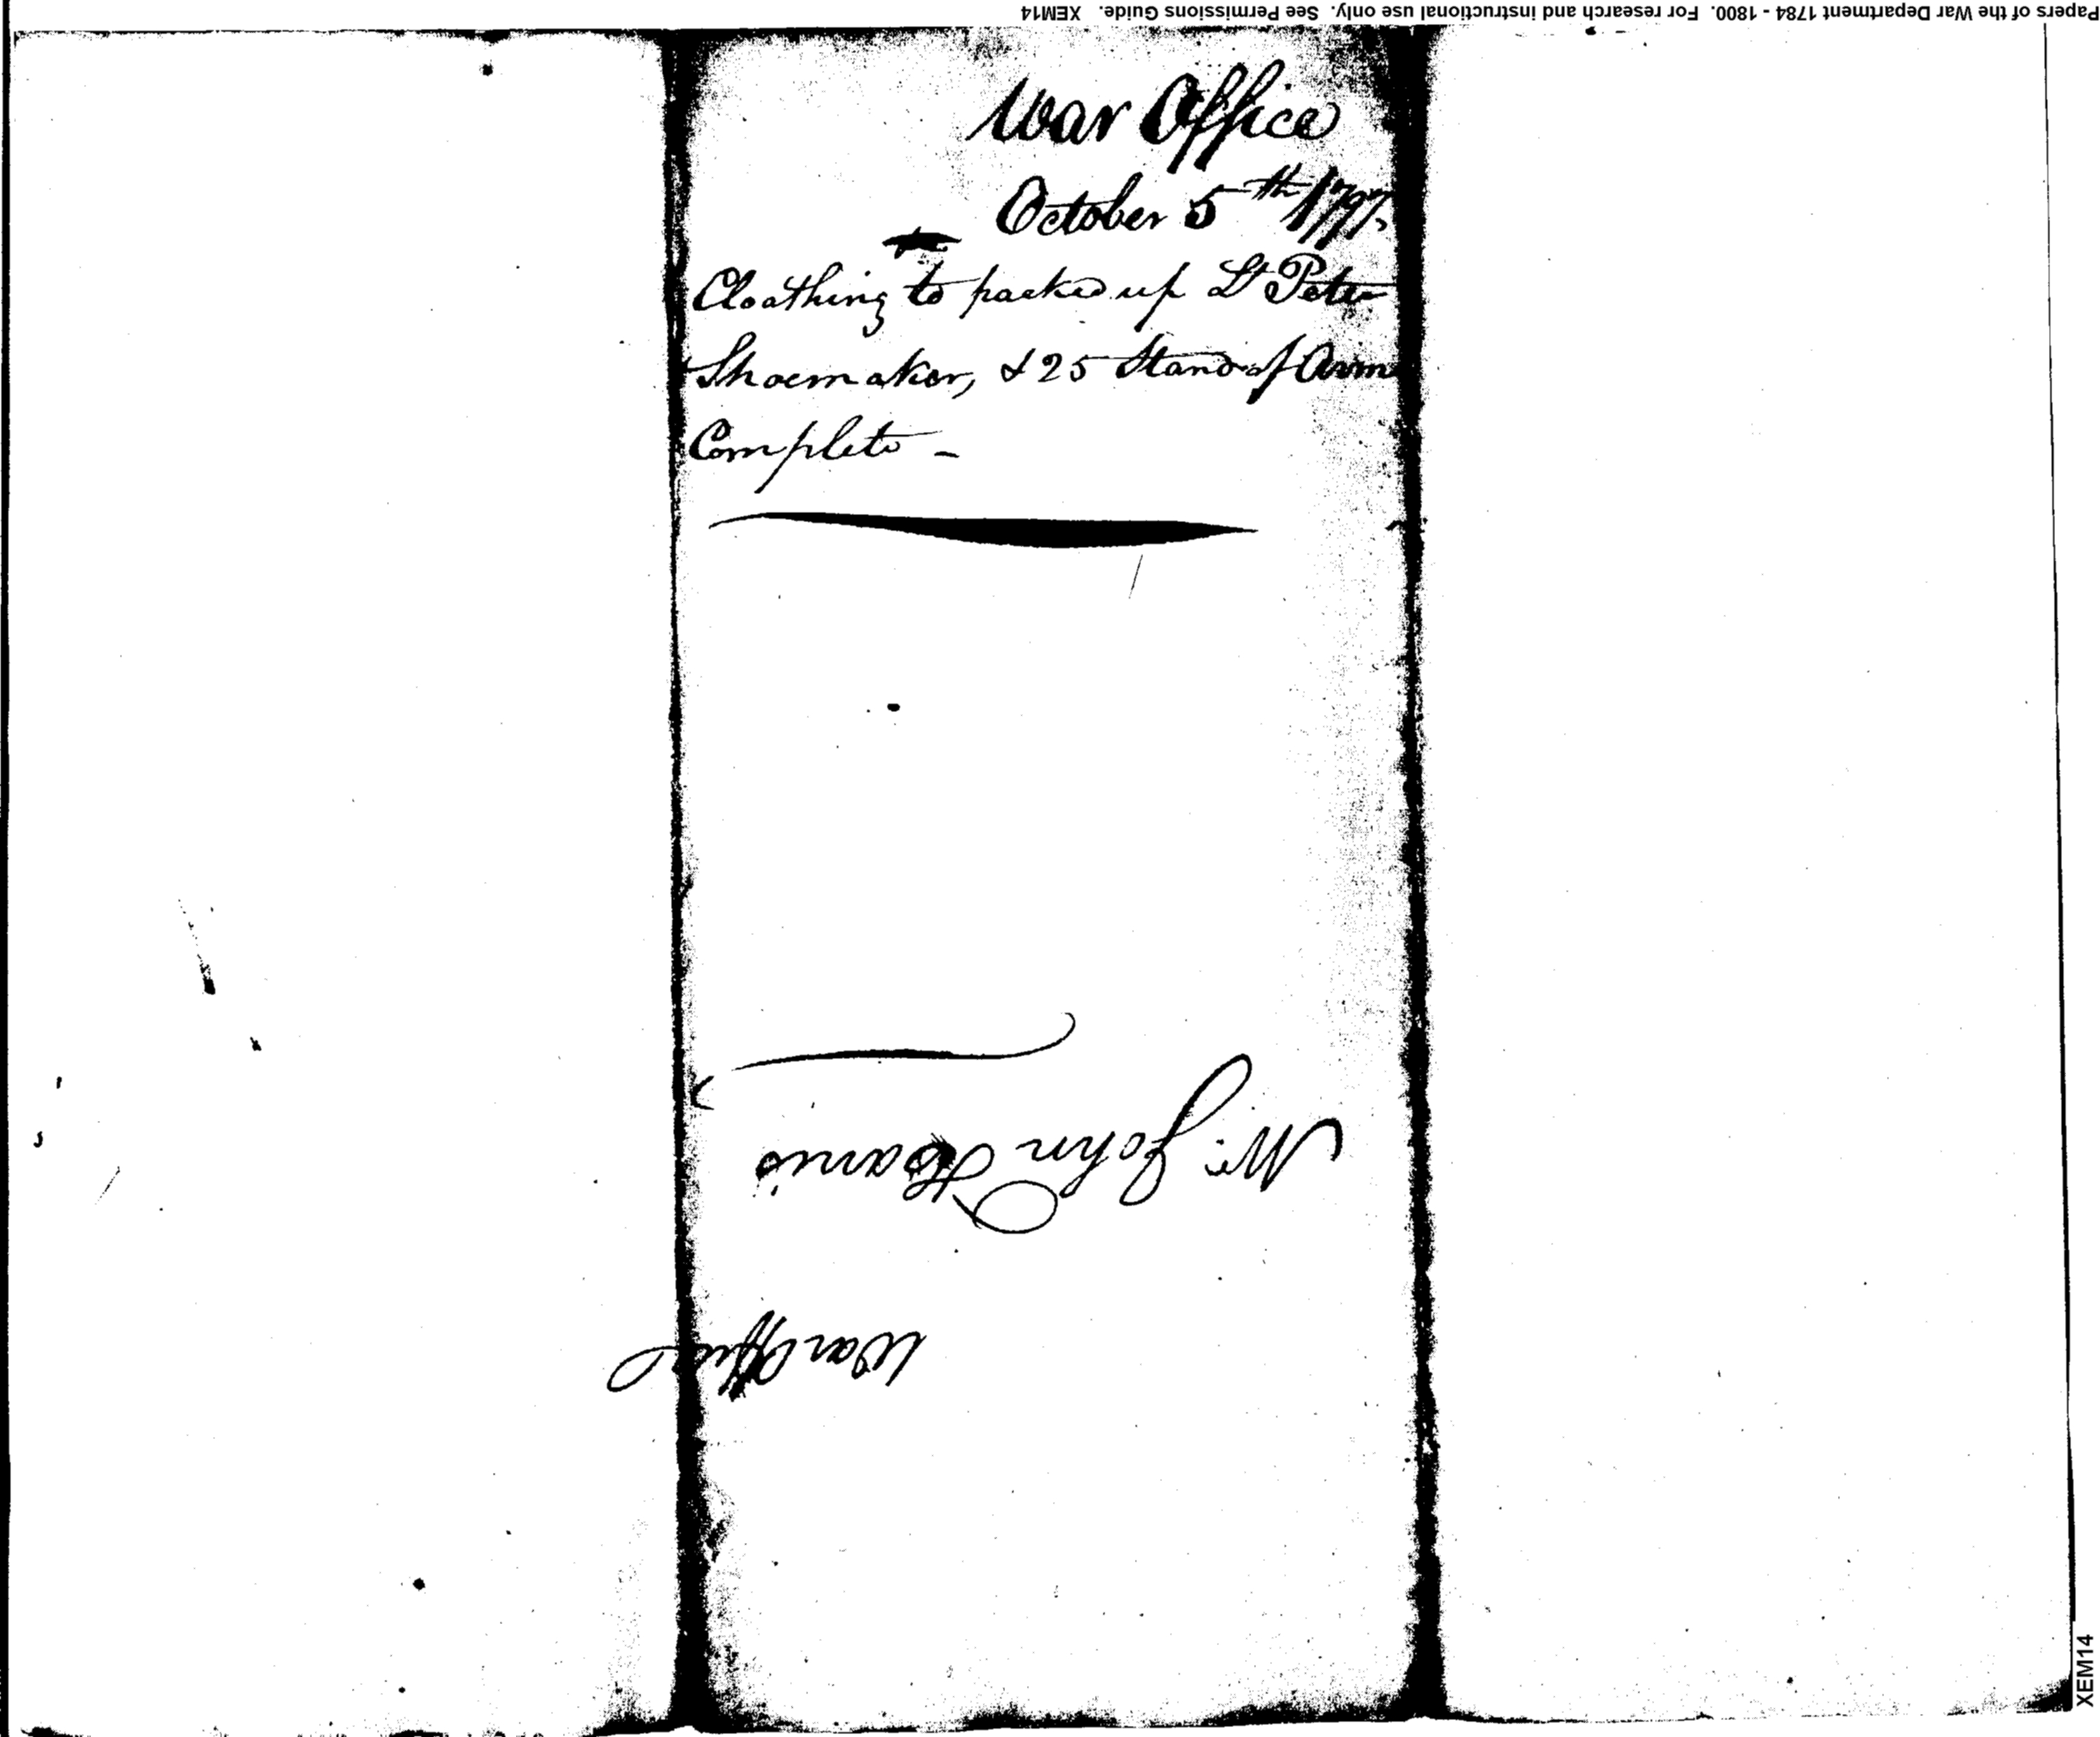 Papers of the War Department 1784 - 1800. For research and instructional use only. See Permissions Guide. XEM14
War Office
October 5th 1797.
Cloathing to packed up Lt Peter
Shoemaker, & 25 Stand of Arms
Complete -
Mr. John Harris
War Office
XEM14